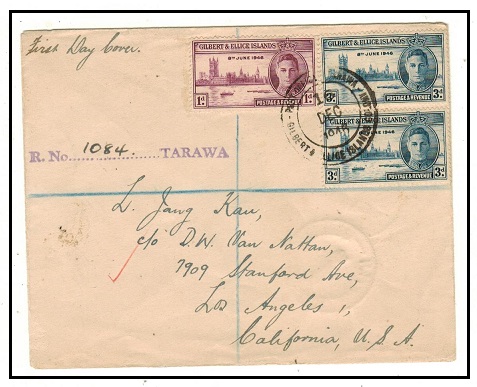 First Day Cover.
GILBERT & ELLICE ISLANDS
8TH JUNE 1946
1d 1d
POSTAGE & REVENUE
GILBERT & ELLICE ISLANDS
8TH JUNE 1946
3d 3d
POSTAGE & REVENUE
3d 3d
POSTAGE & REVENUE
TARAWA
DEC
1946
GILBERT & ELLICE ISLANDS
R. No. 1084. TARAWA
L. Jang Kau,
c/o D.W. Van Nattan,
7909 Stanford Ave,
Los Angeles 1,
California, U.S.A.